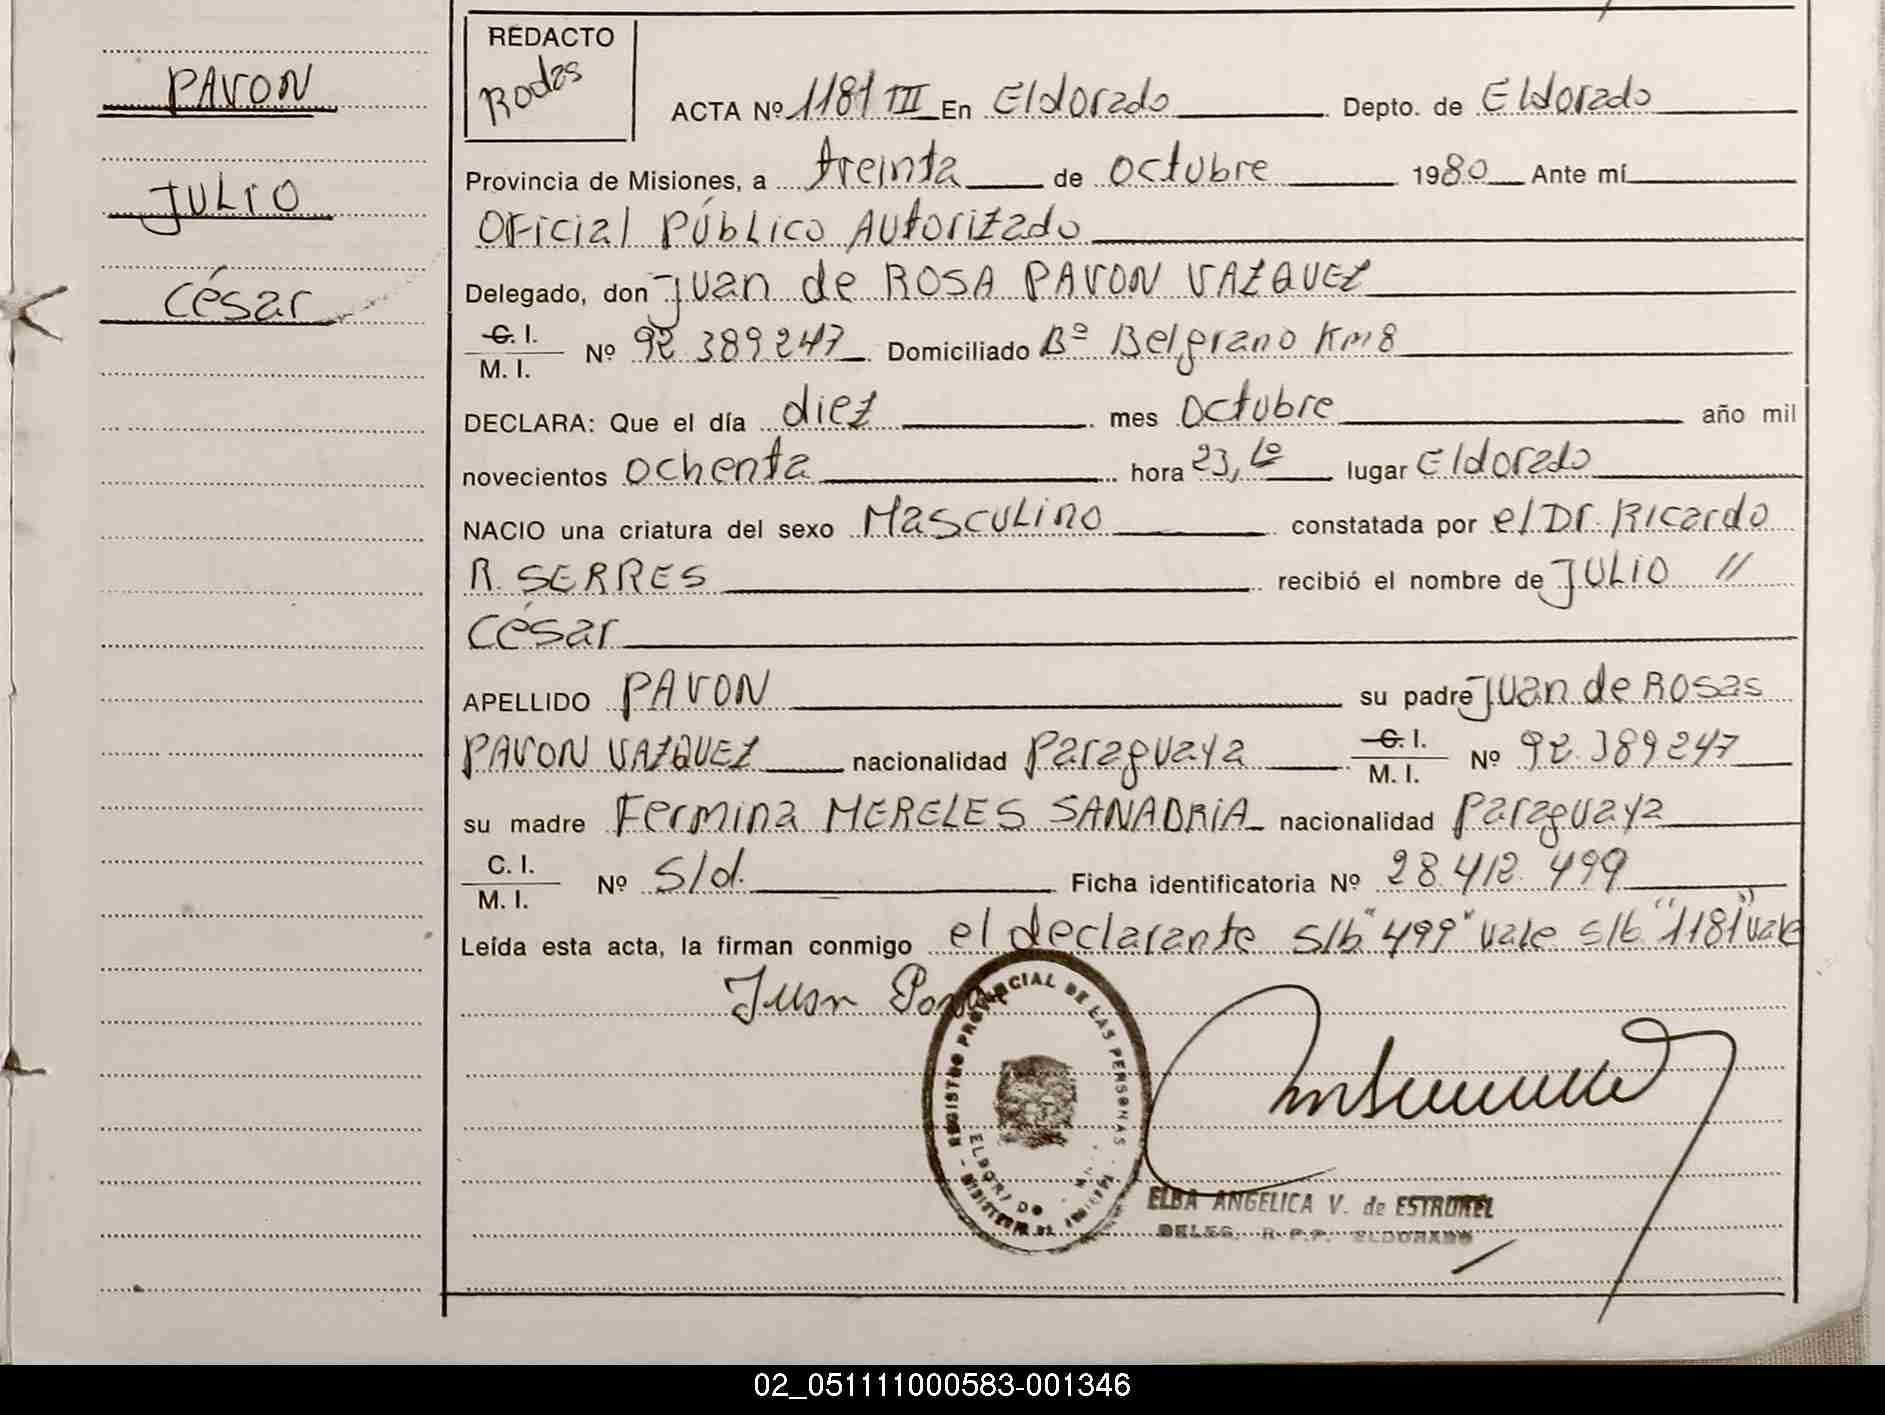 PAVON
JULIO
César
REDACTO
Rodas
ACTA Nº 1181 III En Eldorado Depto. de Eldorado
Provincia de Misiones, a treinta de octubre 1980 Ante mí
Oficial Público Autorizado
Delegado, don Juan de ROSA PAVON VAZQUEZ
C. I.
M. I. Nº 92.389247 Domiciliado Bº Belgrano Km8
DECLARA: Que el día diez mes octubre año mil
novecientos ochenta hora 23, lugar Eldorado
NACIO una criatura del sexo Masculino constatada por el Dr. Ricardo
R. SERRES recibió el nombre de JULIO //
César
APELLIDO PAVON su padre Juan de Rosas
PAVON VAZQUEZ nacionalidad Paraguaya C. I. M. I. Nº 92.389247
su madre Fermina MERELES SANABRIA nacionalidad Paraguaya
C. I.
M. I. Nº S/d. Ficha identificatoria Nº 28.412.499
Leída esta acta, la firman conmigo el declarante s/b "499" vale s/b "1181" vale
Juan
REGISTRO PROVINCIAL DE LAS PERSONAS
ELDORADO
ELBA ANGELICA V. de ESTRUREL
DELEG. R.P.P. ELDORADO
02_051111000583-001346